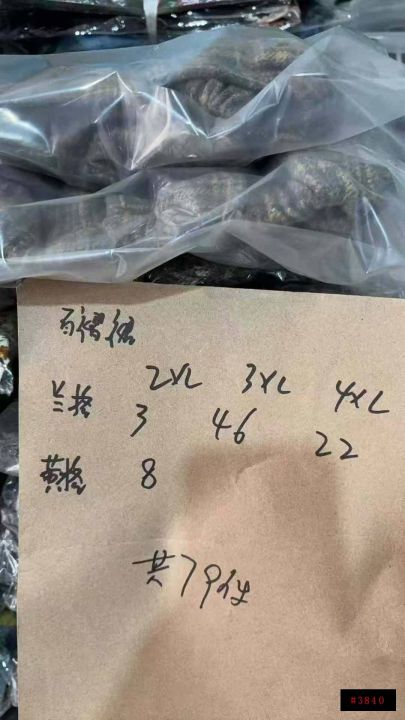 百褶裙
2XL 3XL 4XL
兰格 3 46 22
黄格 8
共79件
#3840